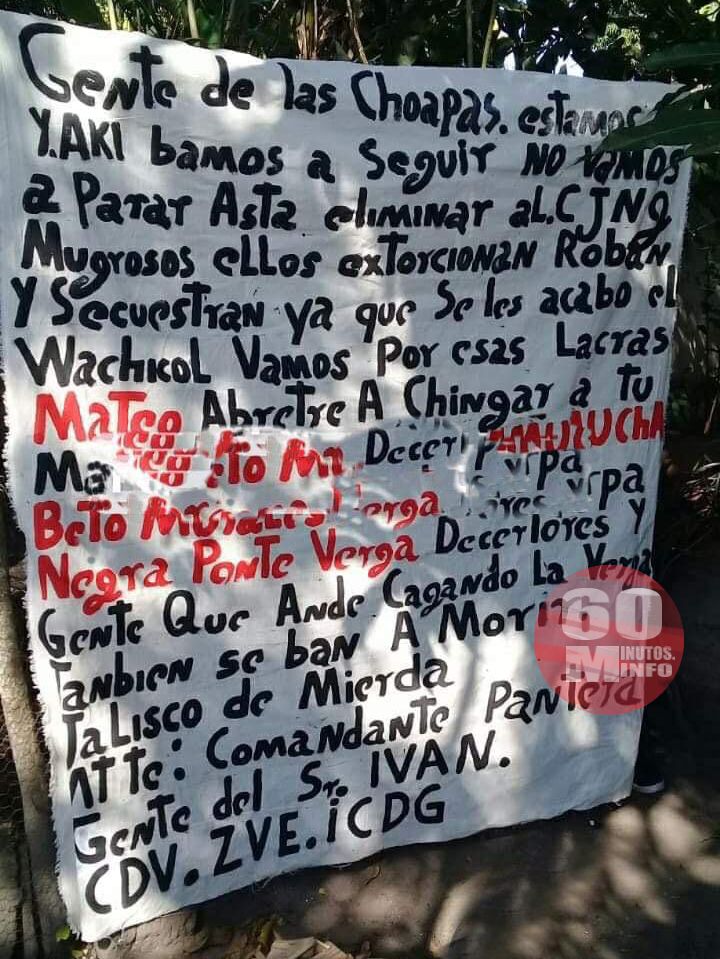 Gente de las Choapas. estamos
Y.AKI bamos a Seguir NO vamos
a Parar Asta eliminar aL.CJNg
Mugrosos ellos extorcionan Roban
Y Secuestran ya que Se les acabo el
Wachicol Vamos Por esas Lacras
Mateo Abretre A Chingar a tu
Ma
Beto Verga
Negra Ponte Verga Decertores Y
Gente Que Ande Cagando La Verga
Tanbien se ban A Morir
Jalisco de Mierda
Atte: Comandante Pantera
Gente del Sr. IVAN.
CDV. ZVE. iCDG
60
MINUTOS.
INFO